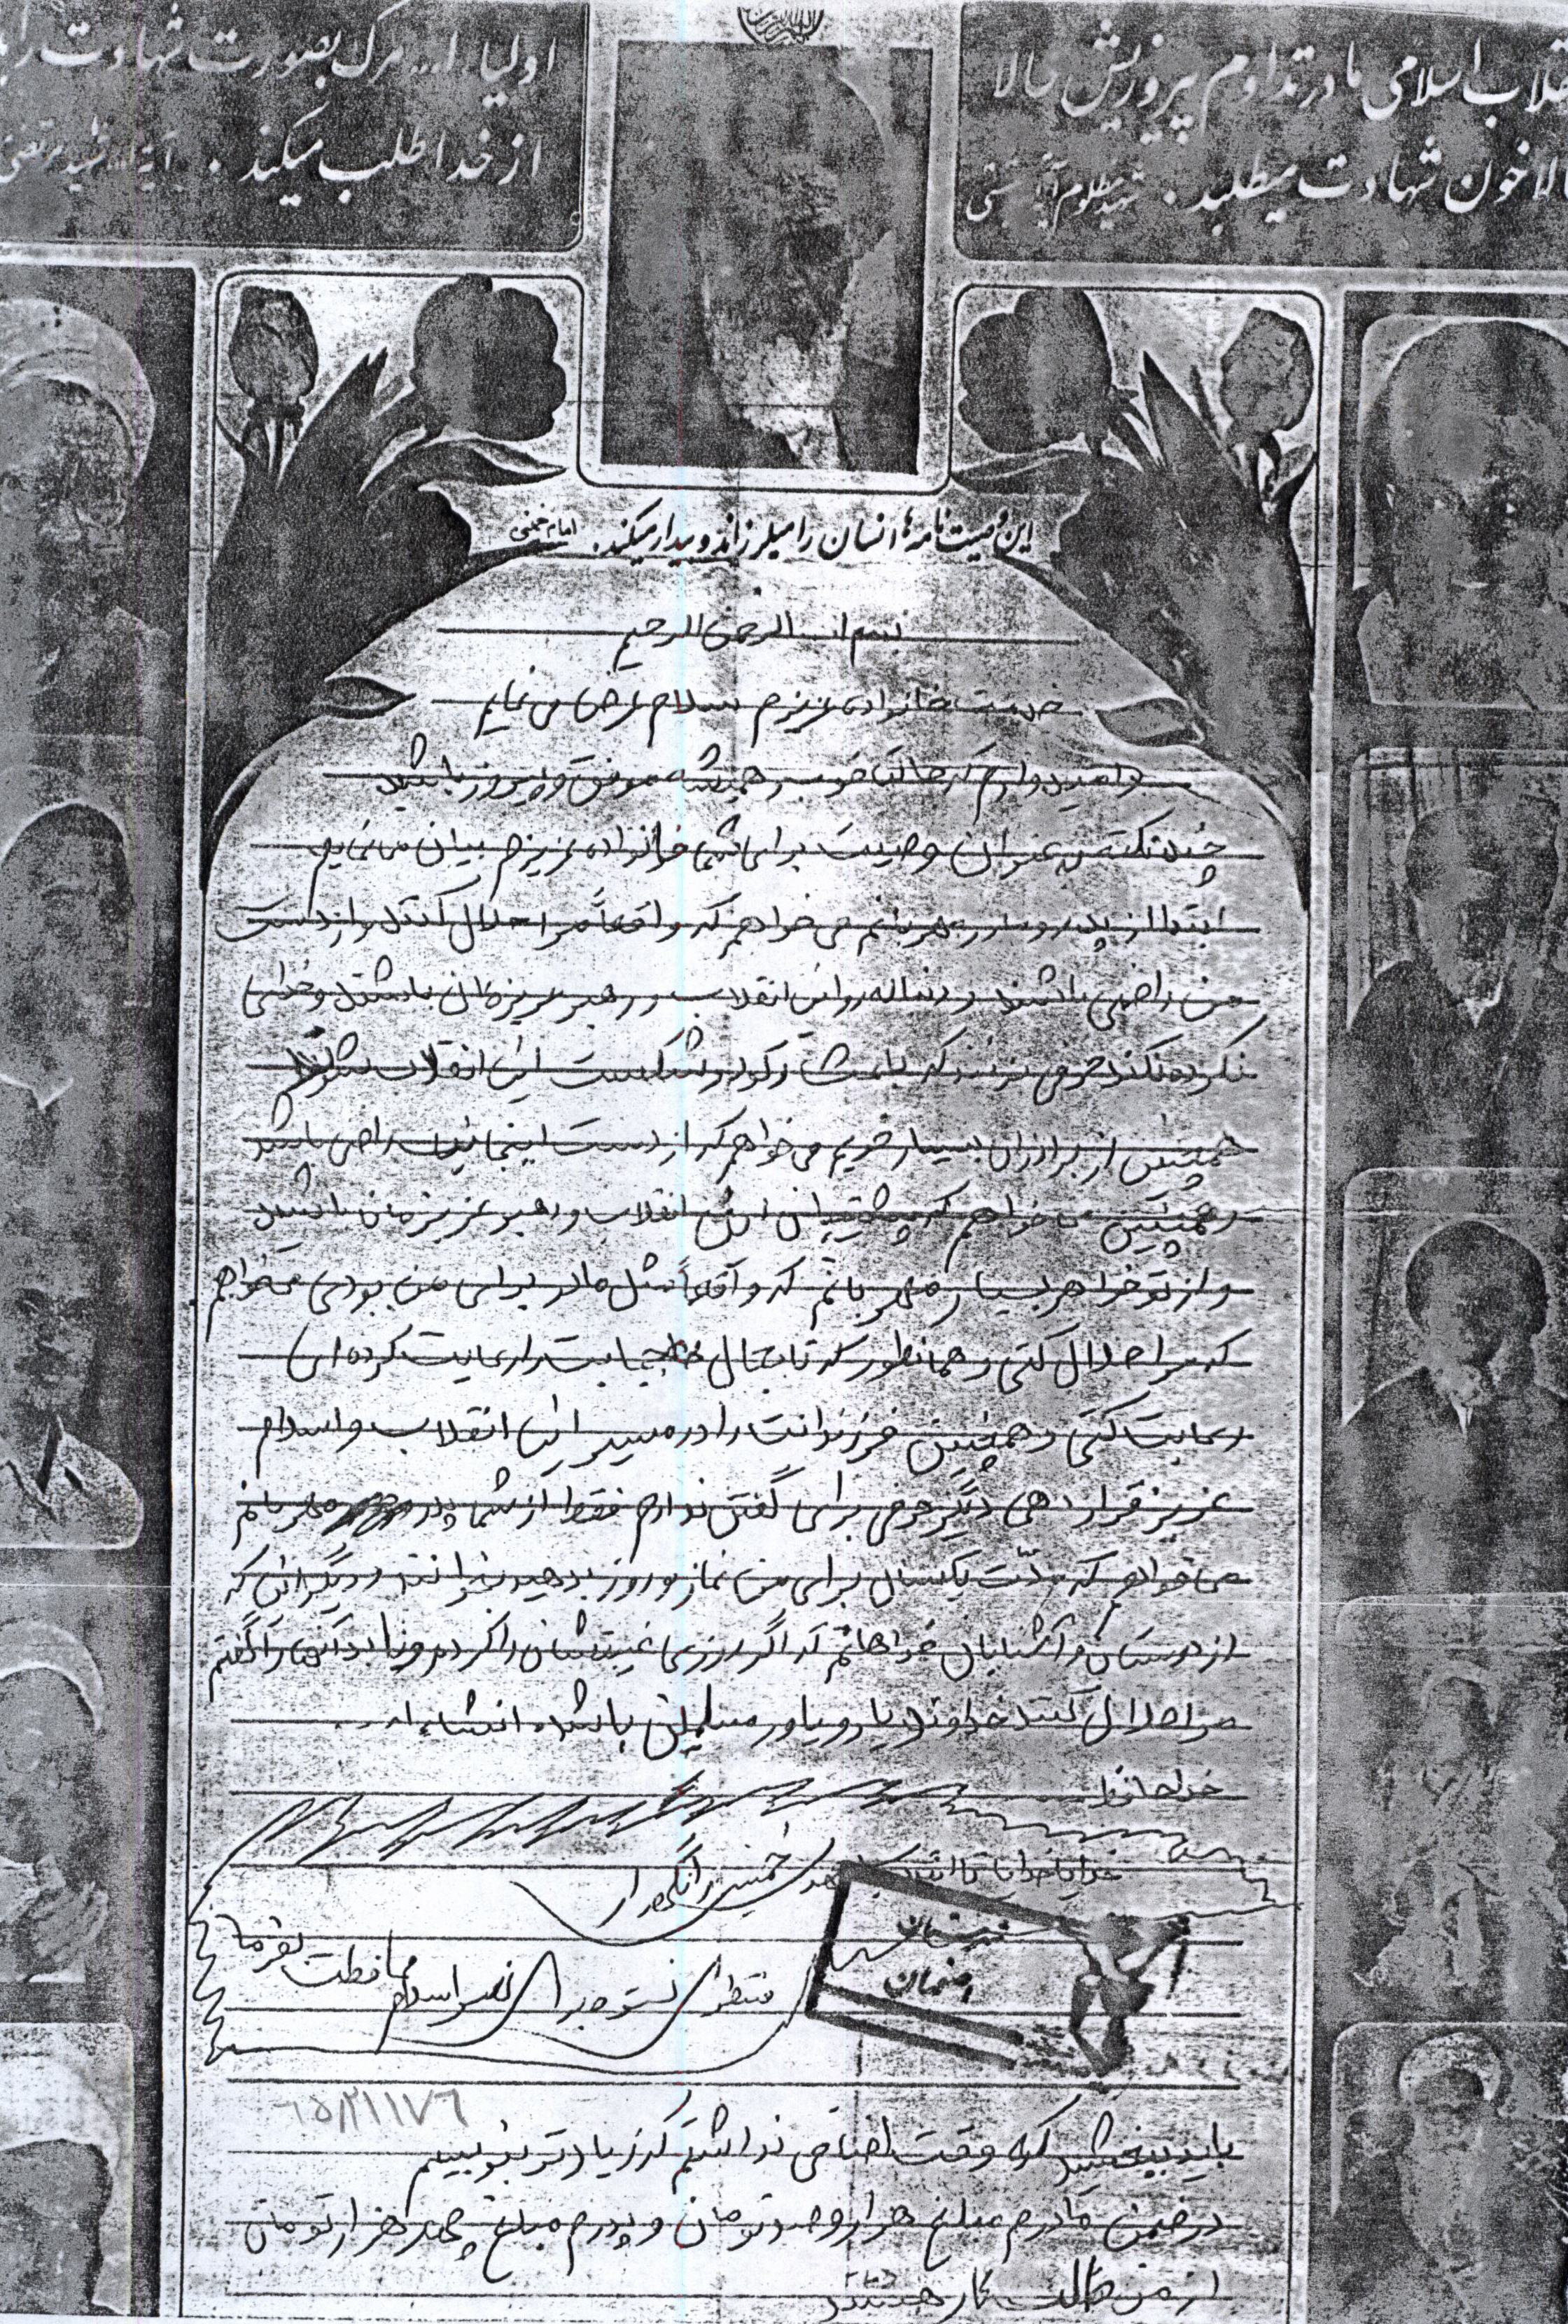 انقلاب اسلامی ما در تداوم پیروزیش کالا
کالا خون شهادت میطلبد. شهید مظلوم آیة بهشتی
اولیاء ا... مرگ بصورت شهادت را
از خدا طلب میکند.
این وصیت نامه ها انسان را میلرزاند و بیدار میکند. امام خمینی
بسم الله الرحمن الرحیم
خدمت خانواده عزیزم سلام عرض می نمایم
و امیدوارم که حالتان خوب و همیشه موفق و پیروز باشید
چند نکته به عنوان وصیت برای شما خانواده عزیزم بیان می نمایم
ابتدا از پدر و مادر مهربانم می خواهم که واقعاً مرا حلال کنند و از دست
من راضی باشند و دنباله رو این انقلاب و رهبر عزیزمان باشند و خدای
نکرده نکند حرفی بزنند که باعث رکود و شکست این انقلاب شود
همچنین از برادران بسیار خوبم می خواهم که از دست اینجانب راضی باشند
و همچنین می خواهم که پشتیبان این انقلاب و رهبر عزیزمان باشید
و از تو خواهر بسیار مهربانم که واقعاً مثل مادر برای من بودی می خواهم
که مرا حلال کنی و همانطور که تا بحال حجابت را رعایت کرده ای
رعایت کنی و همچنین فرزندانت را در مسیر این انقلاب و اسلام
عزیز قرار دهی دیگر حرفی برای گفتن ندارم فقط از شما پدر مهربانم
می خواهم که مدّت یکسال برای من نماز و روزه بدهید بخوانند و دیگر این که
از دوستان و آشنایان خواهانم که اگر روزی غیبتشان را کردم و یا بد آنها را گفتم
مرا حلال کنند خداوند یار و یاور مسلمین باشد انشاء ا...
خداحافظ
خدایا خدایا تا انقلاب مهدی خمینی را نگهدار
منتظری نستوه برای نصر اسلام محافظت بفرما
باید ببخشید که وقت اضافی نداشتم که زیادتر بنویسم
در ضمن مادرم مبلغ هزار و صد تومان و پدرم مبلغ چهار هزار تومان
از من طلب کار هستند